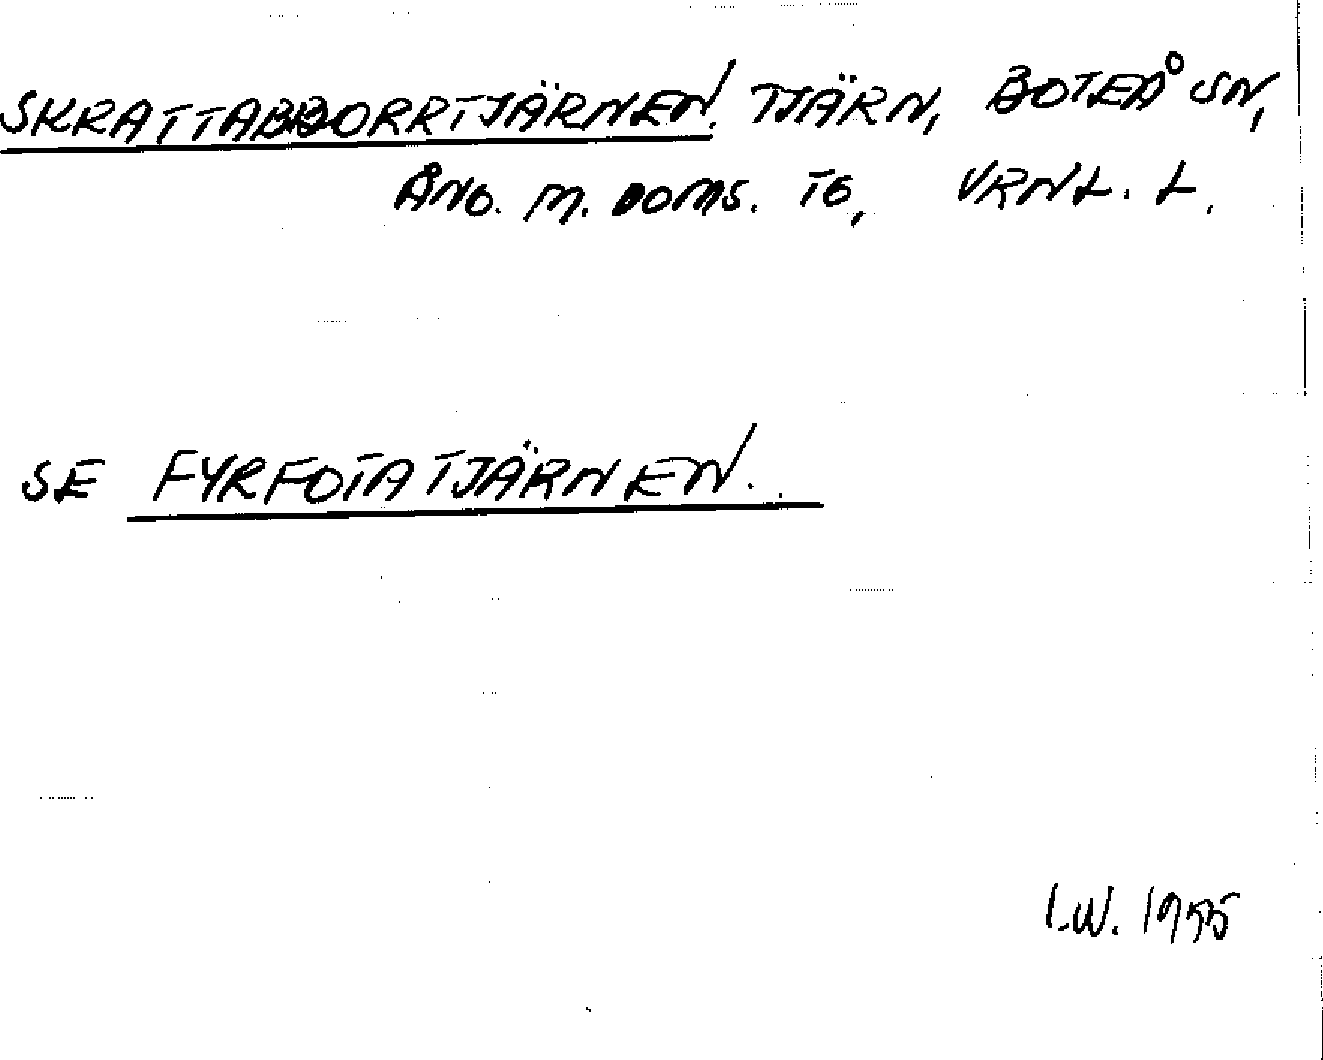 SKRATTABBORRTJÄRNEN. TJÄRN, BOTEÅ SN,
ÅNG. M. DOMS. TG, VRNL. L.
SE FYRFOTATJÄRNEN.
I.W. 1955